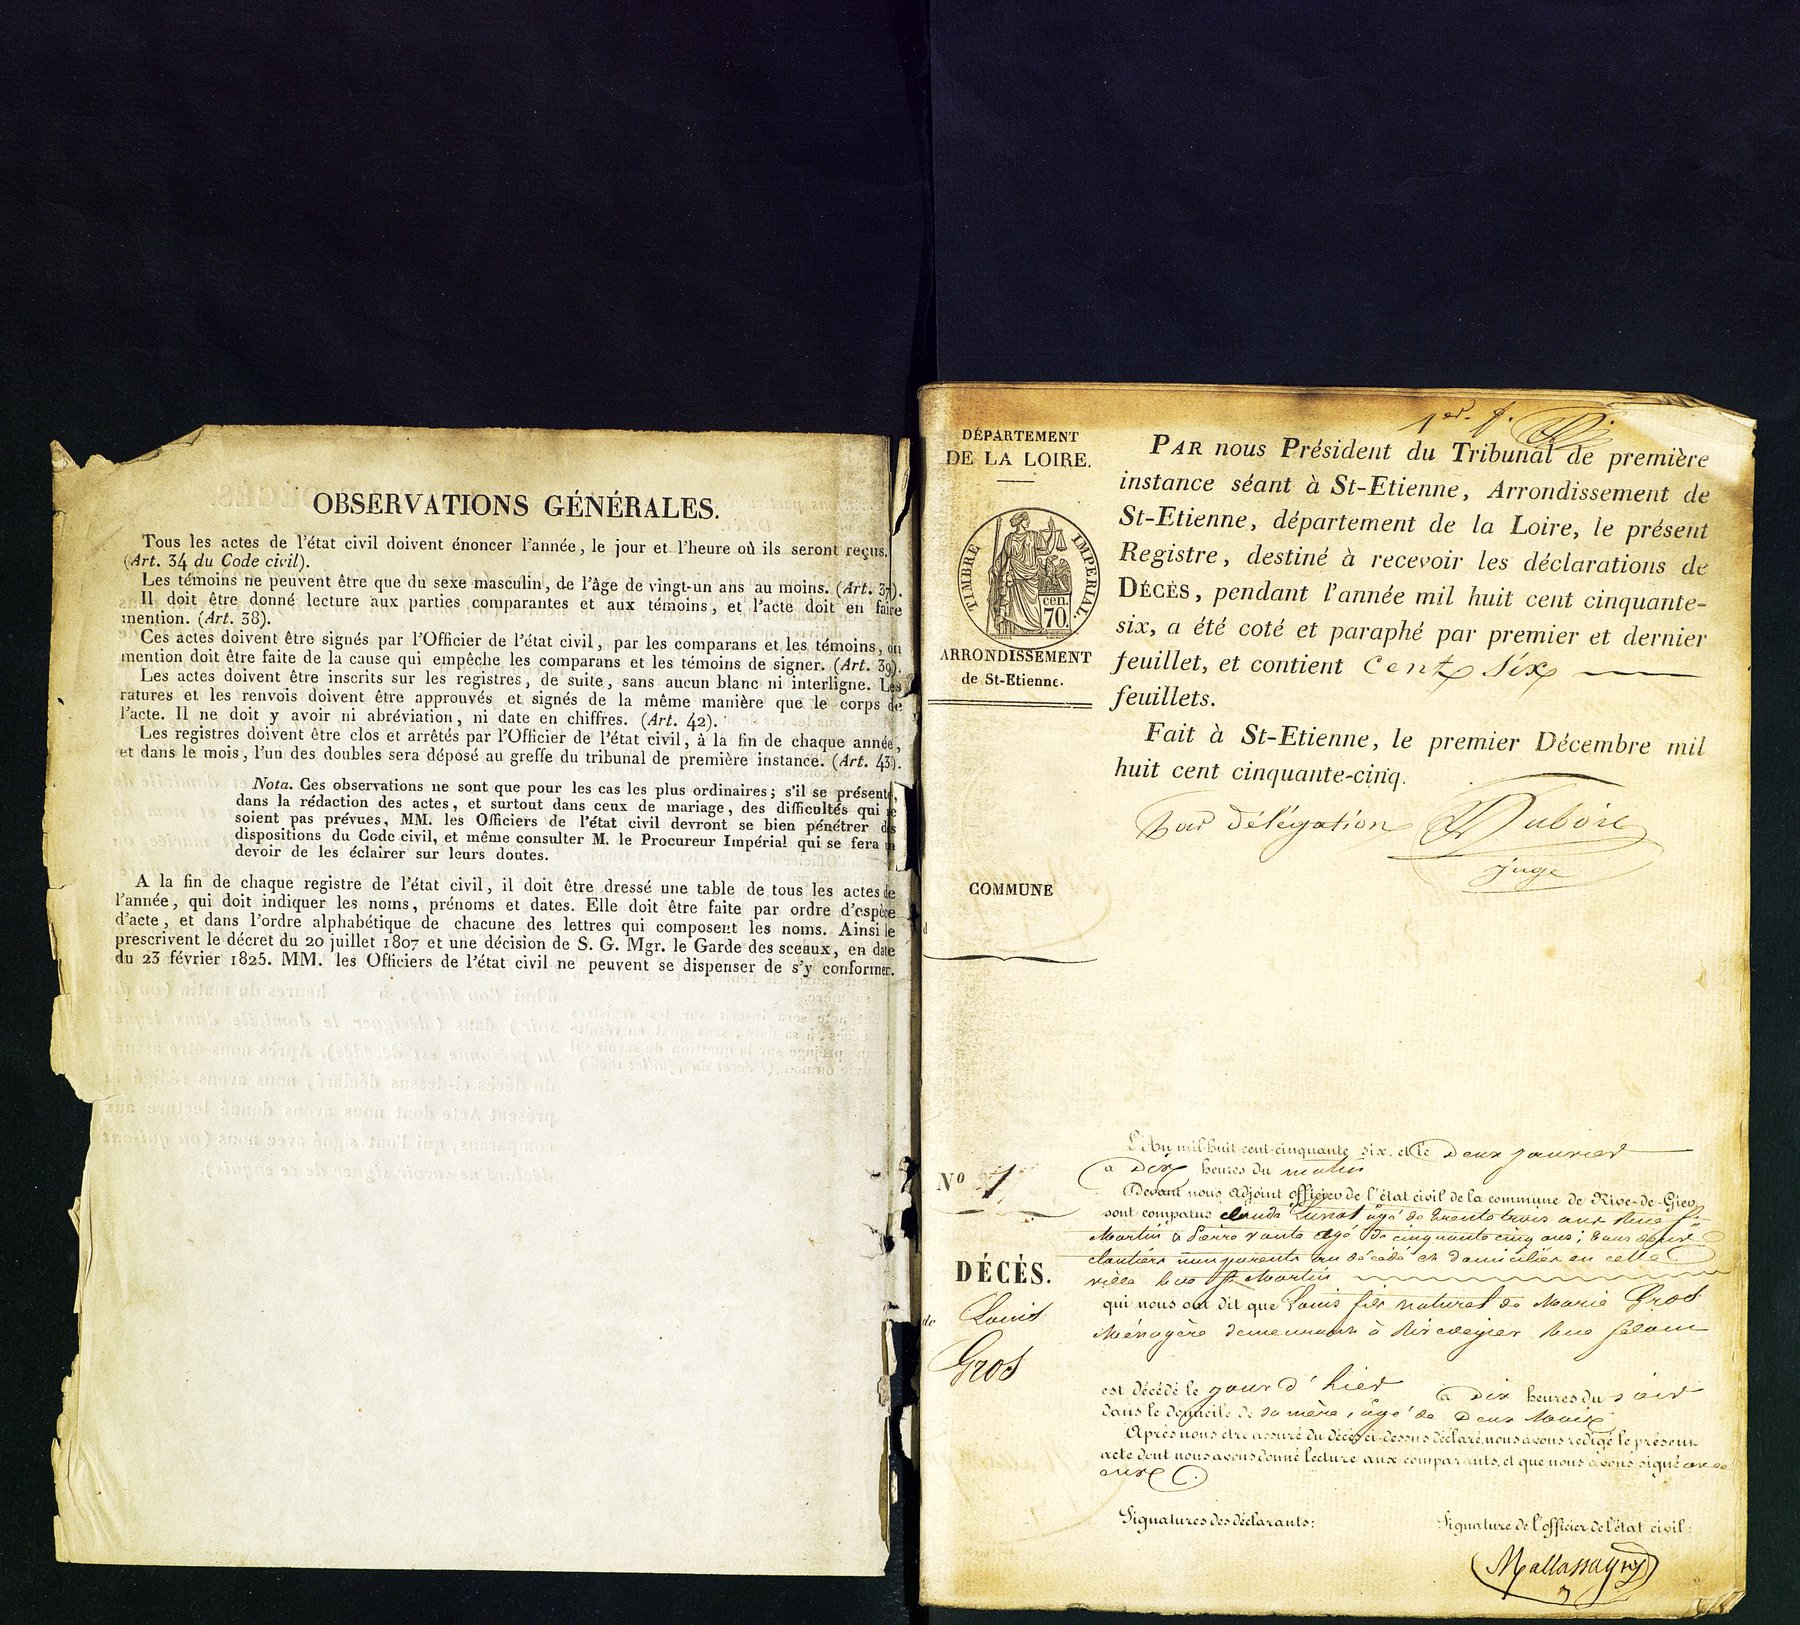 OBSERVATIONS GÉNÉRALES.
Tous les actes de l'état civil doivent énoncer l'année, le jour et l'heure où ils seront reçus.
(Art. 34 du Code civil).
Les témoins ne peuvent être que du sexe masculin, de l'âge de vingt-un ans au moins. (Art. 37).
Il doit être donné lecture aux parties comparantes et aux témoins, et l'acte doit en faire
mention. (Art. 38).
Ces actes doivent être signés par l'Officier de l'état civil, par les comparans et les témoins, ou
mention doit être faite de la cause qui empêche les comparans et les témoins de signer. (Art. 39).
Les actes doivent être inscrits sur les registres, de suite, sans aucun blanc ni interligne. Les
ratures et les renvois doivent être approuvés et signés de la même manière que le corps de
l'acte. Il ne doit y avoir ni abréviation, ni date en chiffres. (Art. 42).
Les registres doivent être clos et arrêtés par l'Officier de l'état civil, à la fin de chaque année,
et dans le mois, l'un des doubles sera déposé au greffe du tribunal de première instance. (Art. 43).
Nota. Ces observations ne sont que pour les cas les plus ordinaires; s'il se présente,
dans la rédaction des actes, et surtout dans ceux de mariage, des difficultés qui ne
soient pas prévues, MM. les Officiers de l'état civil devront se bien pénétrer des
dispositions du Code civil, et même consulter M. le Procureur Impérial qui se fera un
devoir de les éclairer sur leurs doutes.
A la fin de chaque registre de l'état civil, il doit être dressé une table de tous les actes de
l'année, qui doit indiquer les noms, prénoms et dates. Elle doit être faite par ordre d'espèce
d'acte, et dans l'ordre alphabétique de chacune des lettres qui composent les noms. Ainsi le
prescrivent le décret du 20 juillet 1807 et une décision de S. G. Mgr. le Garde des sceaux, en date
du 23 février 1825. MM. les Officiers de l'état civil ne peuvent se dispenser de s'y conformer.
1er. f.
DÉPARTEMENT
DE LA LOIRE.
TIMBRE IMPERIAL.
cen.
70.
ARRONDISSEMENT
de St-Etienne.
COMMUNE
PAR nous Président du Tribunal de première
instance séant à St-Etienne, Arrondissement de
St-Etienne, département de la Loire, le présent
Registre, destiné à recevoir les déclarations de
DÉCÈS, pendant l'année mil huit cent cinquante-
six, a été coté et paraphé par premier et dernier
feuillet, et contient cent six
feuillets.
Fait à St-Etienne, le premier Décembre mil
huit cent cinquante-cinq.
Par délégation Dubois
juge
No 1
DÉCÈS.
de Louis
Gros
L'An mil-huit cent-cinquante six et le Deux janvier
à Dix heures du matin
Devant nous Adjoint officier de l'état civil de la commune de Rive-de-Gier,
sont comparus Claude âgé de trente trois ans Rue St
Martin & Pierre âgé de cinquante cinq ans; tous deux
cloutiers non parents au décédé et domiciliés en cette
ville Rue St Martin
qui nous ont dit que Louis fils naturel de Marie Gros
Ménagère demeurant à Rivedegier Rue
est décédé le jour d'hier à dix heures du soir
dans le domicile de sa mère, âgé de Deux Mois
Après nous être assuré du décès ci-dessus déclaré, nous avons rédigé le présent
acte dont nous avons donné lecture aux comparants, et que nous avons signé avec
eux
Signatures des déclarants:
Signature de l'officier de l'état civil: